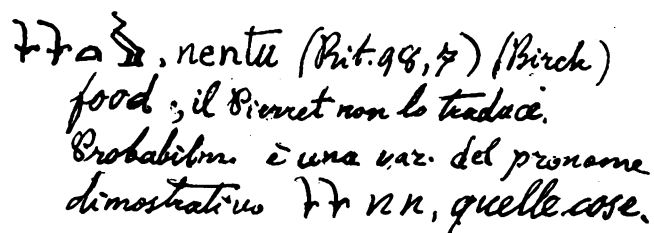 𓇑𓇑𓏏, nentu (Rit. 98, 7) (Birch)
food; il Pierret non lo traduce.
Probabilm. è una var. del pronome
dimostrativo 𓇑𓇑 nn, quelle cose.